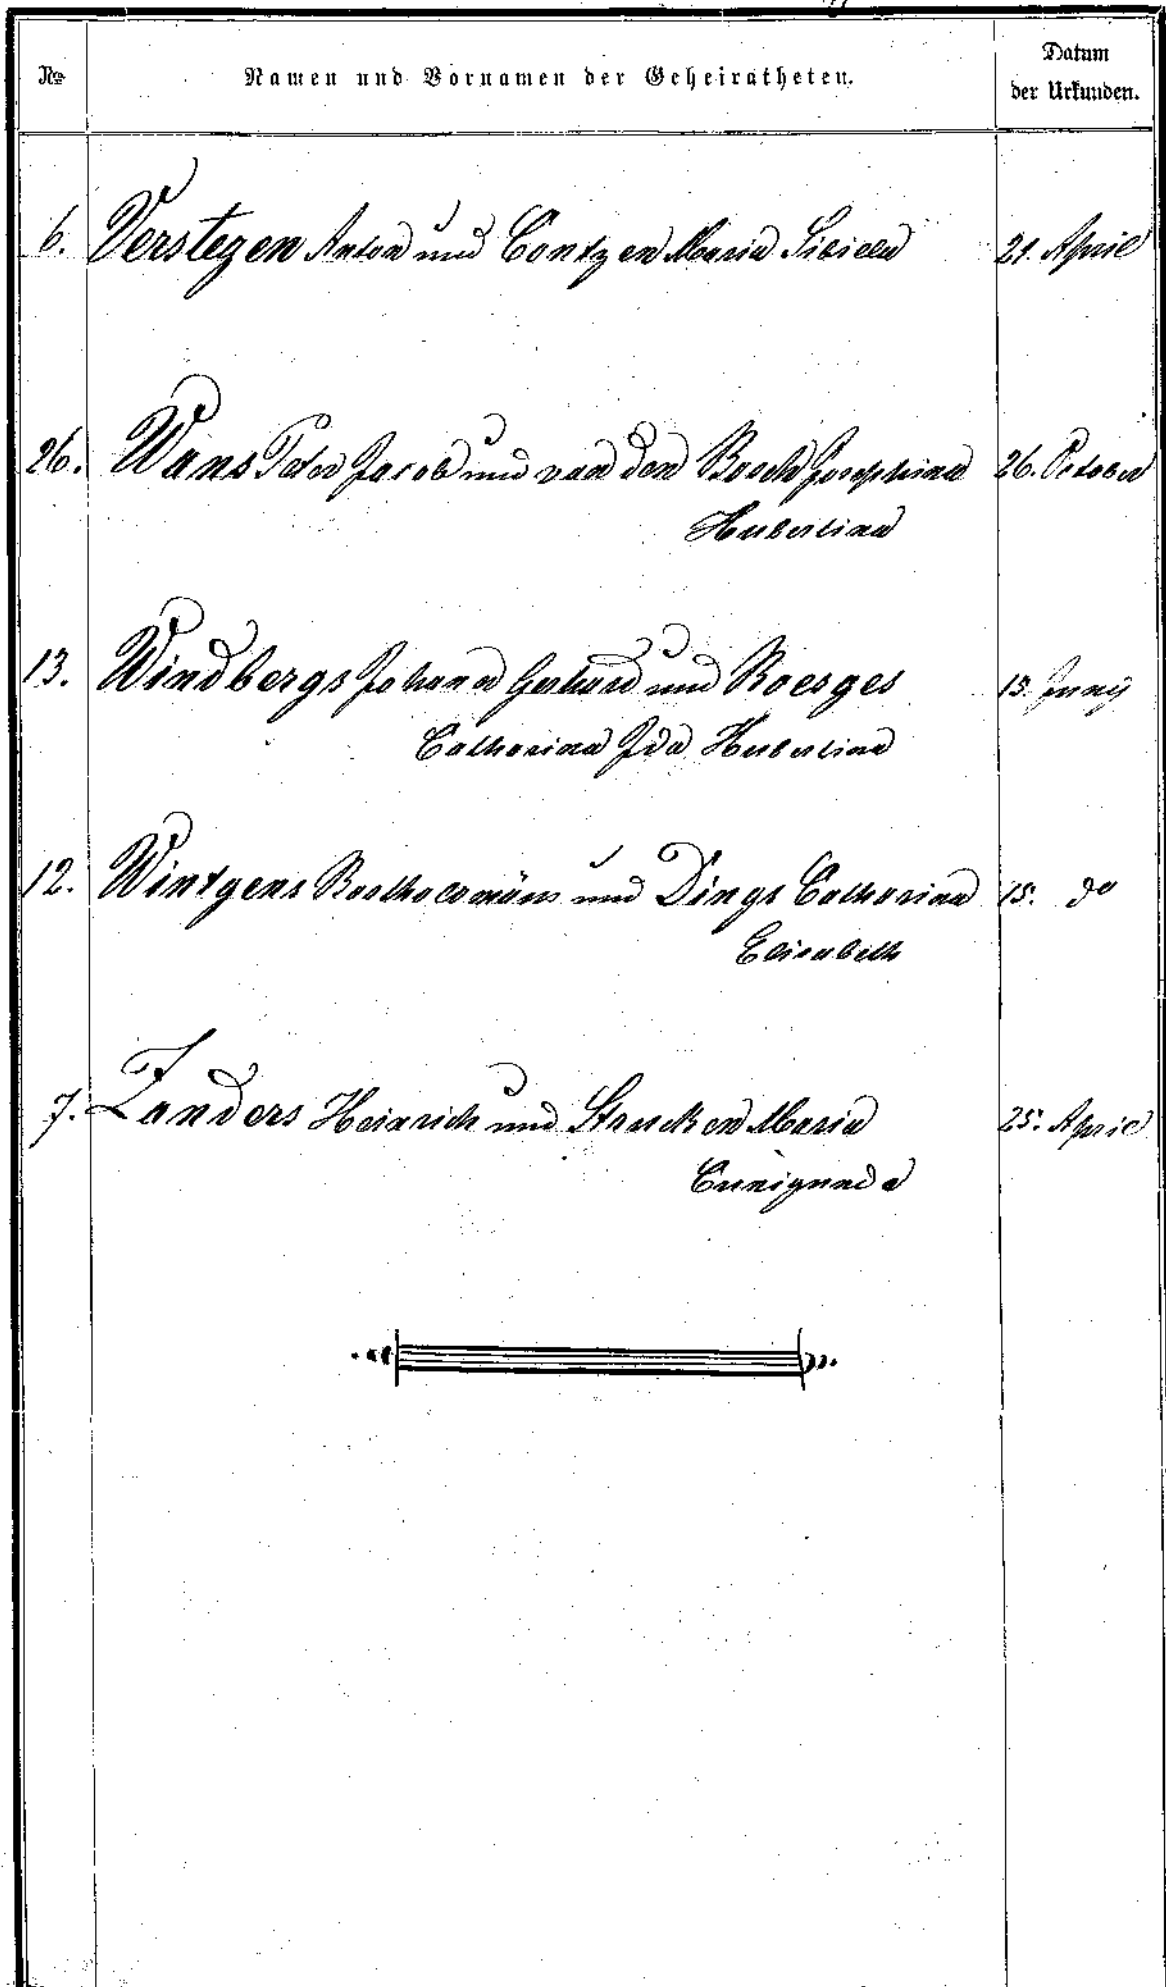 No. Namen und Vornamen der Geheiratheten. Datum der Urkunden.
6. Verstegen Anton und Contzen Maria Sibilla 21. April
26. Wans Peter Jacob und van den Bosch Josephina 26. October
Hubertina
13. Windbergs Johann Gerhard und Roesges 15. Juny
Catharina Ida Hubertina
12. Wintgens Bartholomäus und Dings Catharina 15. do
Elisabeth
7. Zanders Heinrich und Strucken Maria 25. April
Cunigunda